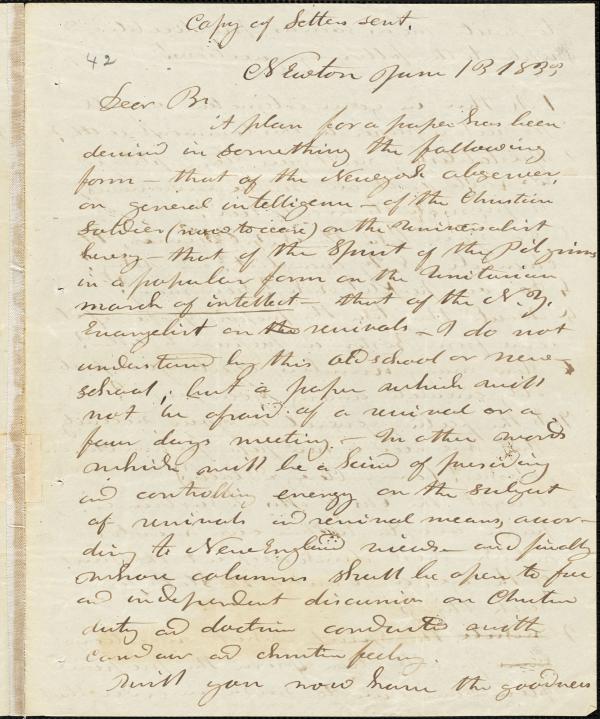 Copy of Letters sent.
42
Newton June 13 1833
Dear Br
A plan for a paper has been
devised in something the following
form – that of the Newyork observer,
on general intelligence – of the Christian
Soldier (now to cease) on the Universalist
heresy – that of the Spirit of the Pilgrims
in a popular form on the Unitarian
march of intellect – that of the N. Y.
Evangelist on revivals – I do not
understand by this old school or new
school; but a paper which will
not be afraid of a revival or a
four days meeting. – In other words
which will be a kind of presiding
and controlling energy on the subject
of revivals and revival means, accor-
ding to New England views – and finally
whose columns shall be open to free
and independent discussion on Christian
duty and doctrine conducted with
candour and christian feeling.
Will you now have the goodness